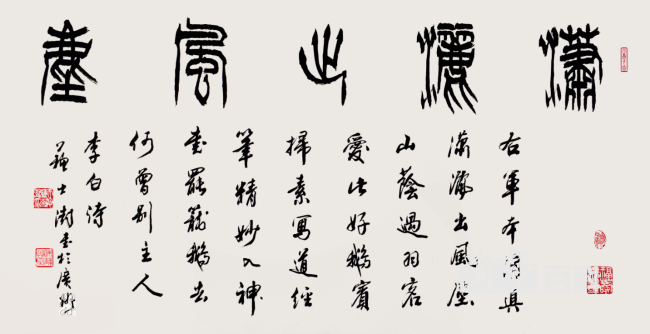 瀟灑出風塵
右軍本清真
瀟灑出風塵
山蔭過羽客
愛此好鵝賓
掃素寫道經
筆精妙入神
書罷籠鵝去
何曾別主人
李白诗
蘇士澍書於